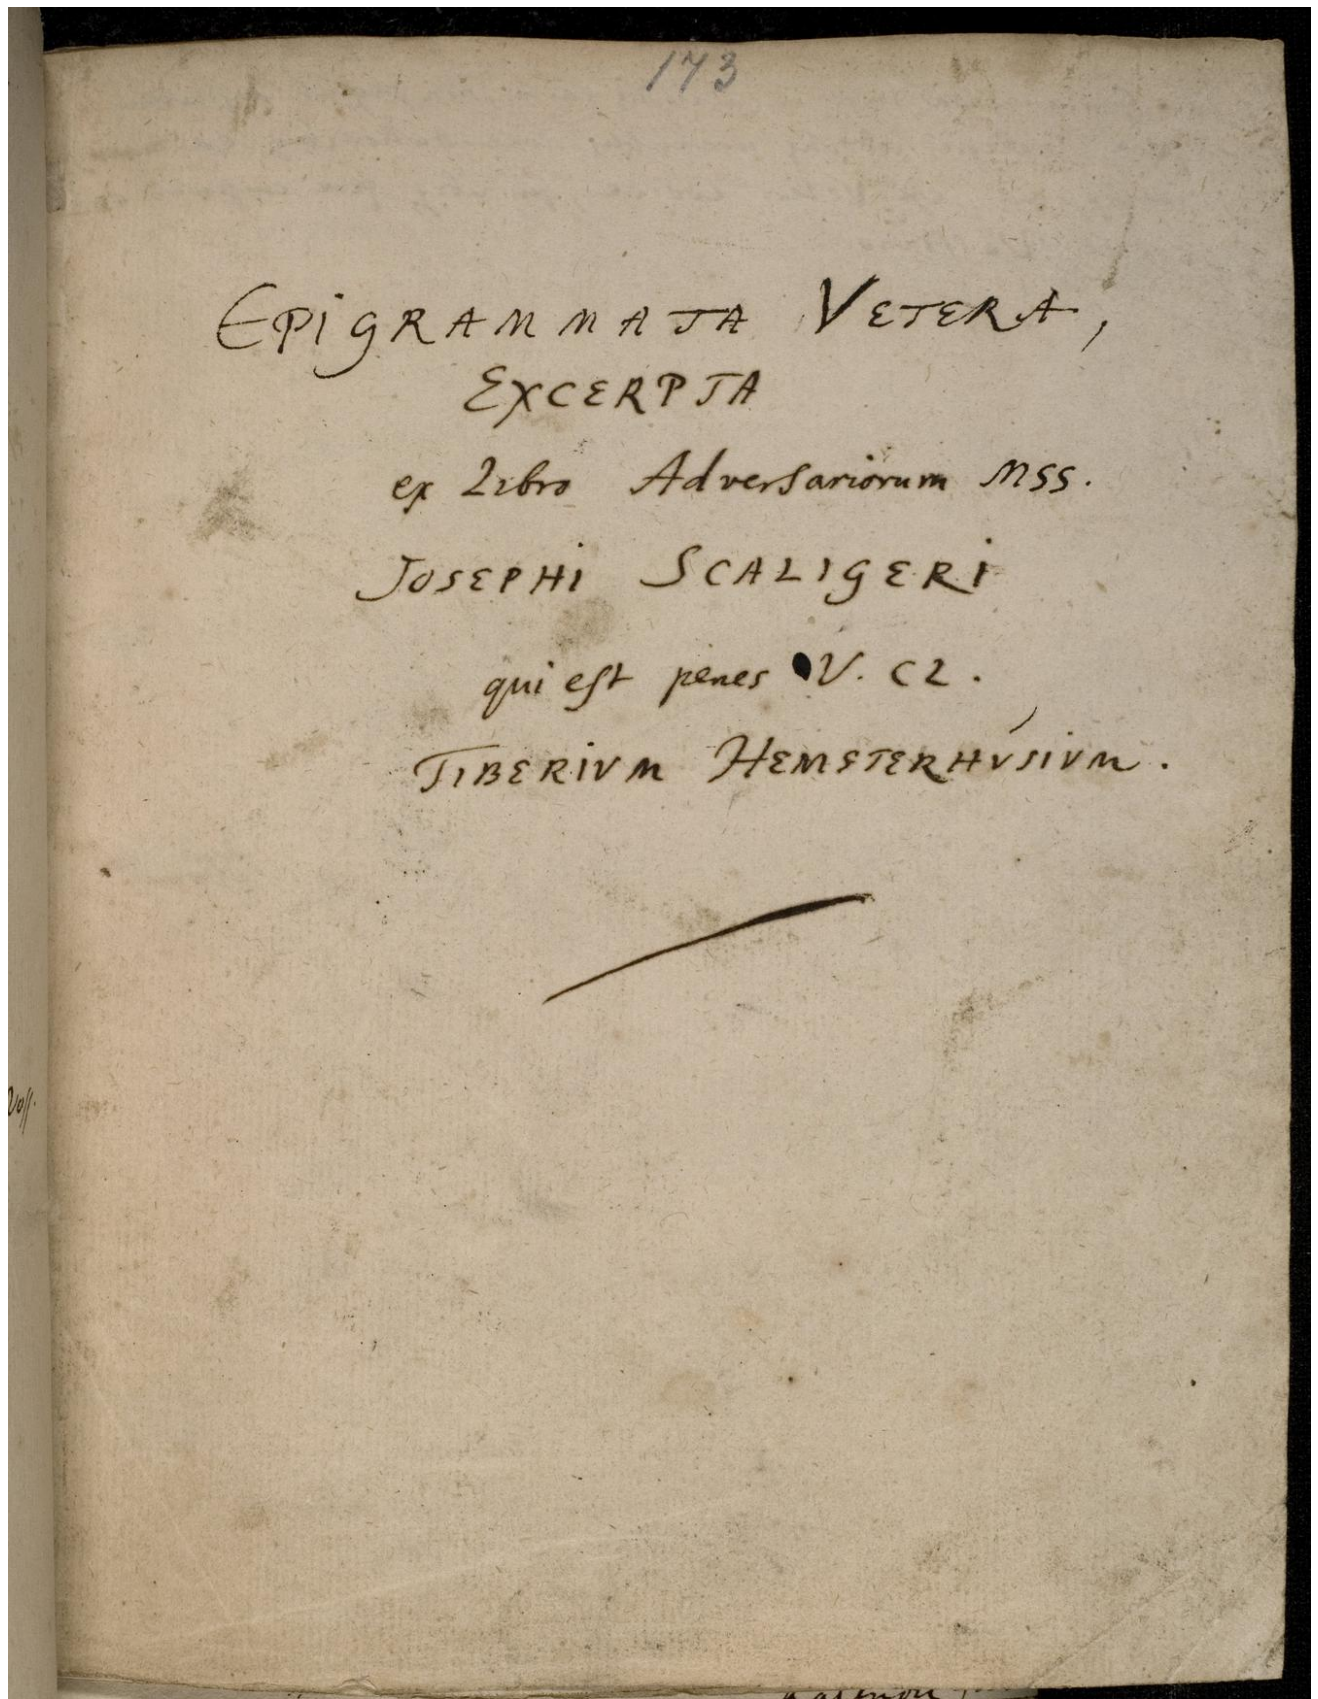 173
EPIGRAMMATA VETERA,
EXCERPTA
ex Libro Adversariorum MSS.
JOSEPHI SCALIGERI
qui est penes V. CL.
TIBERIVM HEMSTERHVSIVM.
Voss.